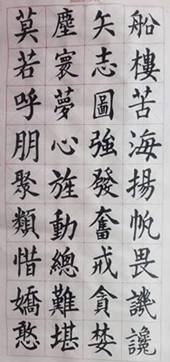 船樓苦海揚帆畏譏讒
矢志圖強發奮戒貪婪
塵寰夢心旌動總難堪
莫若呼朋聚類惜嬌憨